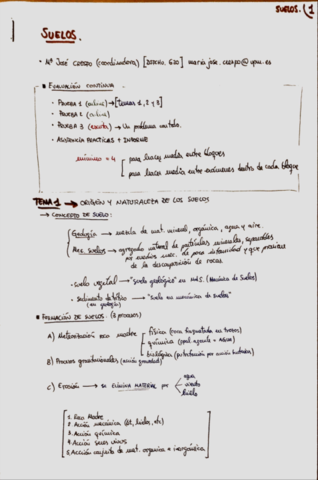 SUELOS. 1
SUELOS.
• Mª José CRESPO (coordinadora) [DESPACHO. 620] maria jose.crespo@upm.es
■ EVALUACIÓN CONTINUA
- PRUEBA 1 (online) → [temas 1, 2 y 3]
- PRUEBA 2 (online)
- PRUEBA 3 (escrita) → Un problema
- ASISTENCIA PRÁCTICAS + INFORME
mínimo = 4
para hacer media entre bloques
para hacer media entre exámenes dentro de cada bloque
TEMA 1 → ORIGEN Y NATURALEZA DE LOS SUELOS
→ CONCEPTO DE SUELO:
Geología → mezcla de mat. mineral, orgánica, agua y aire.
Mec. suelos → agregado natural de partículas minerales, separables
por medios mec. de poca intensidad y que proviene
de la descomposición de rocas.
- Suelo vegetal → "suelo geológico" en MdS. (Mecánica de Suelos)
- Sedimento detrítico → "suelo en mecánica de suelos"
(en geología)
■ FORMACIÓN DE SUELOS (3 procesos)
A) Meteorización roca madre
física (roca fragmentada en trozos)
química (ppal. agente = AGUA)
biológica (perturbación por acción
B) Procesos gravitacionales (acción gravedad)
C) Erosión → se ELIMINA MATERIAL por
agua
viento
hielo
1. Roca Madre
2. Acción mecánica (Δt, hielo, etc)
3. Acción química
4. Acción seres vivos
5. Acción conjunta de mat. orgánica e inorgánica